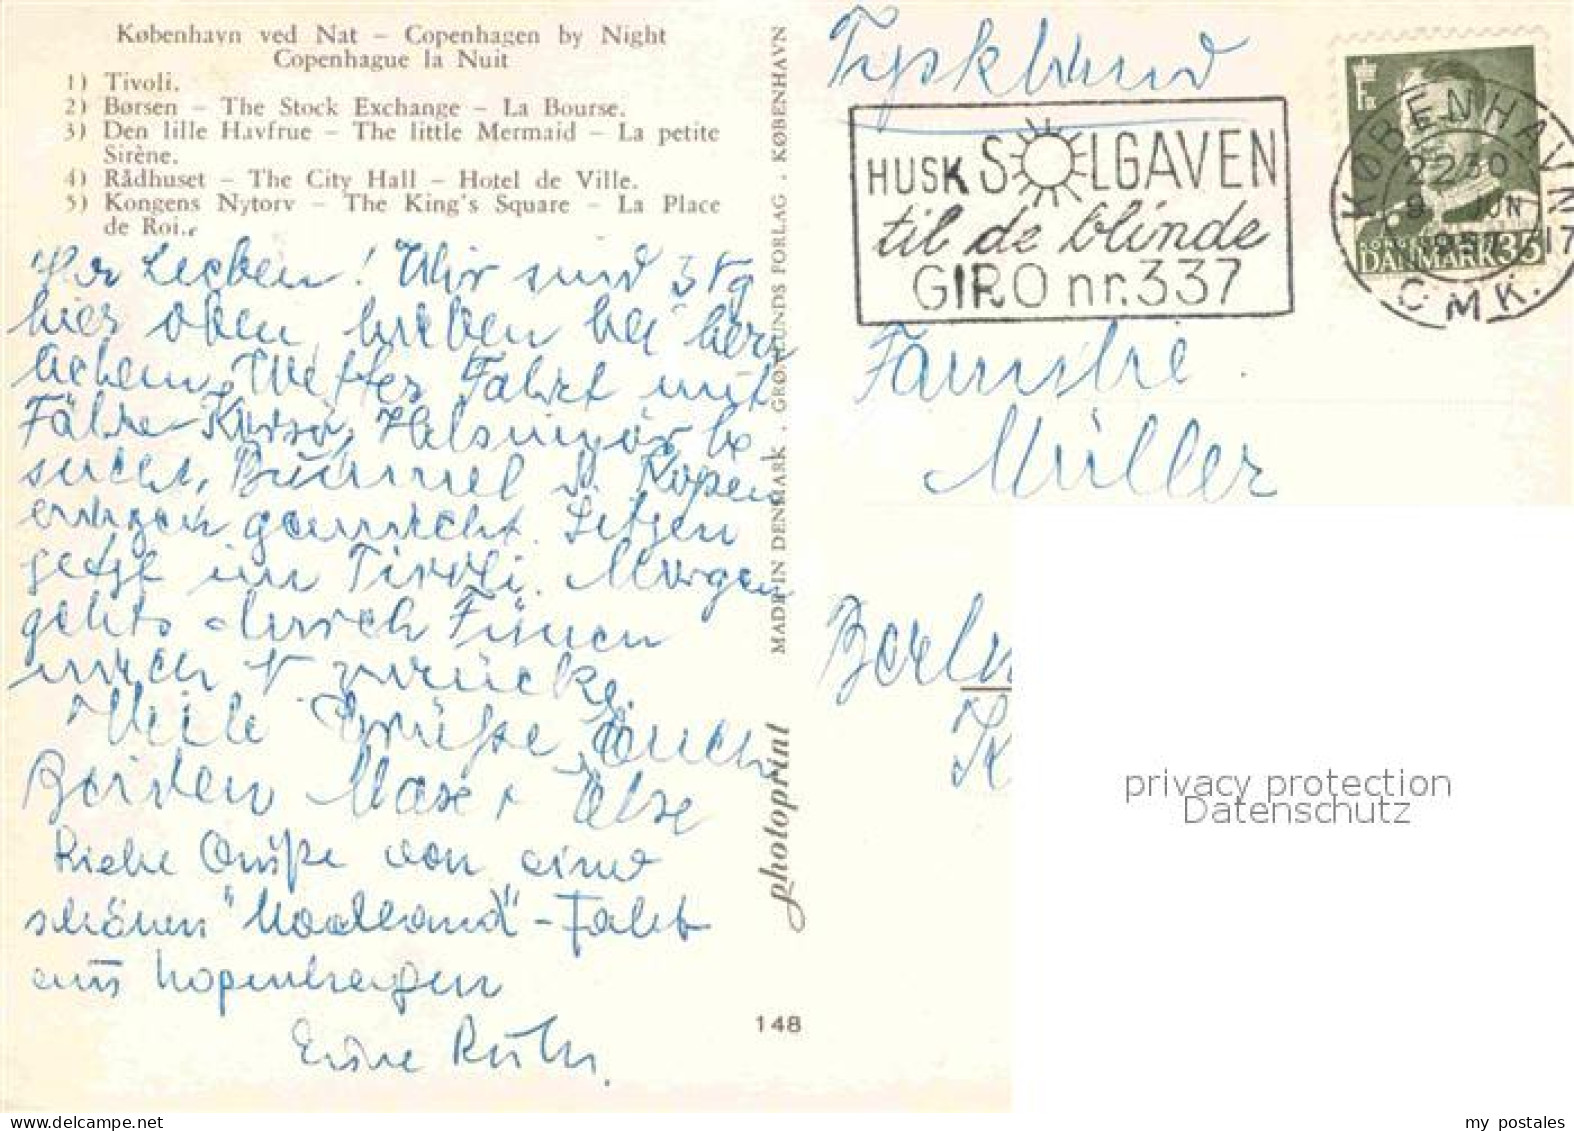 København ved Nat – Copenhagen by Night
Copenhague la Nuit
1) Tivoli.
2) Børsen – The Stock Exchange – La Bourse.
3) Den lille Havfrue – The little Mermaid – La petite
Sirène.
4) Rådhuset – The City Hall – Hotel de Ville.
5) Kongens Nytorv – The King's Square – La Place
de Roi.
Ihr Lieben! Wir sind 3 Tg
hier oben, haben bei herr
lichem Wetter Fahrt mit
Fähre Korsör, Helsingör be
sucht, Bummel d. Kopen
hagen gemacht. Sitzen
jetzt im Tivoli. Morgen
gehts durch Fünen
nach zurück.
Viele Grüße Euch
Beiden Max + Else
Liebe Grüße von einer
schönen "Nordland"-Fahrt
aus Kopenhagen
Eure Ruth.
MADE IN DENMARK . GRØNLUNDS FORLAG . KØBENHAVN
photoprint
148
Tyskland
HUSK SOLGAVEN
til de blinde
GIRO nr. 337
KØBENHAVN
2230
9. JUN
17
OMK.
DANMARK 35
Familie
Müller
Berlin
privacy protection
Datenschutz
my postales